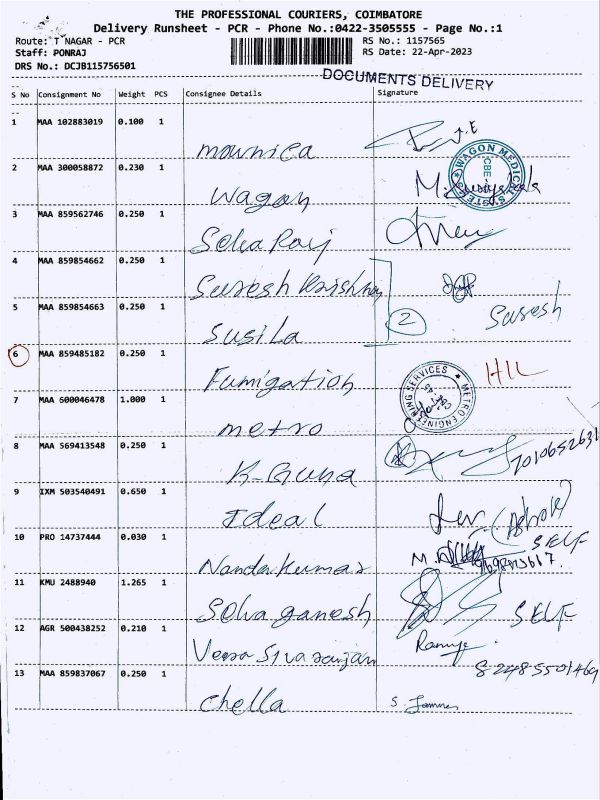 THE PROFESSIONAL COURIERS, COIMBATORE
Delivery Runsheet - PCR - Phone No.:0422-3505555 - Page No.:1
Route: T NAGAR - PCR RS No.: 1157565
Staff: PONRAJ RS Date: 22-Apr-2023
DRS No.: DCJB115756501
DOCUMENTS DELIVERY
S No Consignment No Weight PCS Consignee Details Signature
1 MAA 102883019 0.100 1
Mounica
2 MAA 300058872 0.230 1
WAGON MEDICAL SYSTEMS CBE
Wagon
3 MAA 859562746 0.250 1
Selva Raj
4 MAA 859854662 0.250 1
Suresh Krishnan
5 MAA 859854663 0.250 1
2 Suresh
Susila
6 MAA 859485182 0.250 1
Fumigation
METRO ENGINEERING SERVICES
7 MAA 600046478 1.000 1
metro
8 MAA 569413548 0.250 1
7010652631
K-Guna
9 IXM 503540491 0.650 1
Ideal
(Ashok)
10 PRO 14737444 0.030 1
SELF
Nandakumar
11 KMU 2488940 1.265 1
Selva ganesh
SELF
12 AGR 500438252 0.210 1
Ramya
Veera Sivaranjan
13 MAA 859837067 0.250 1
Chella